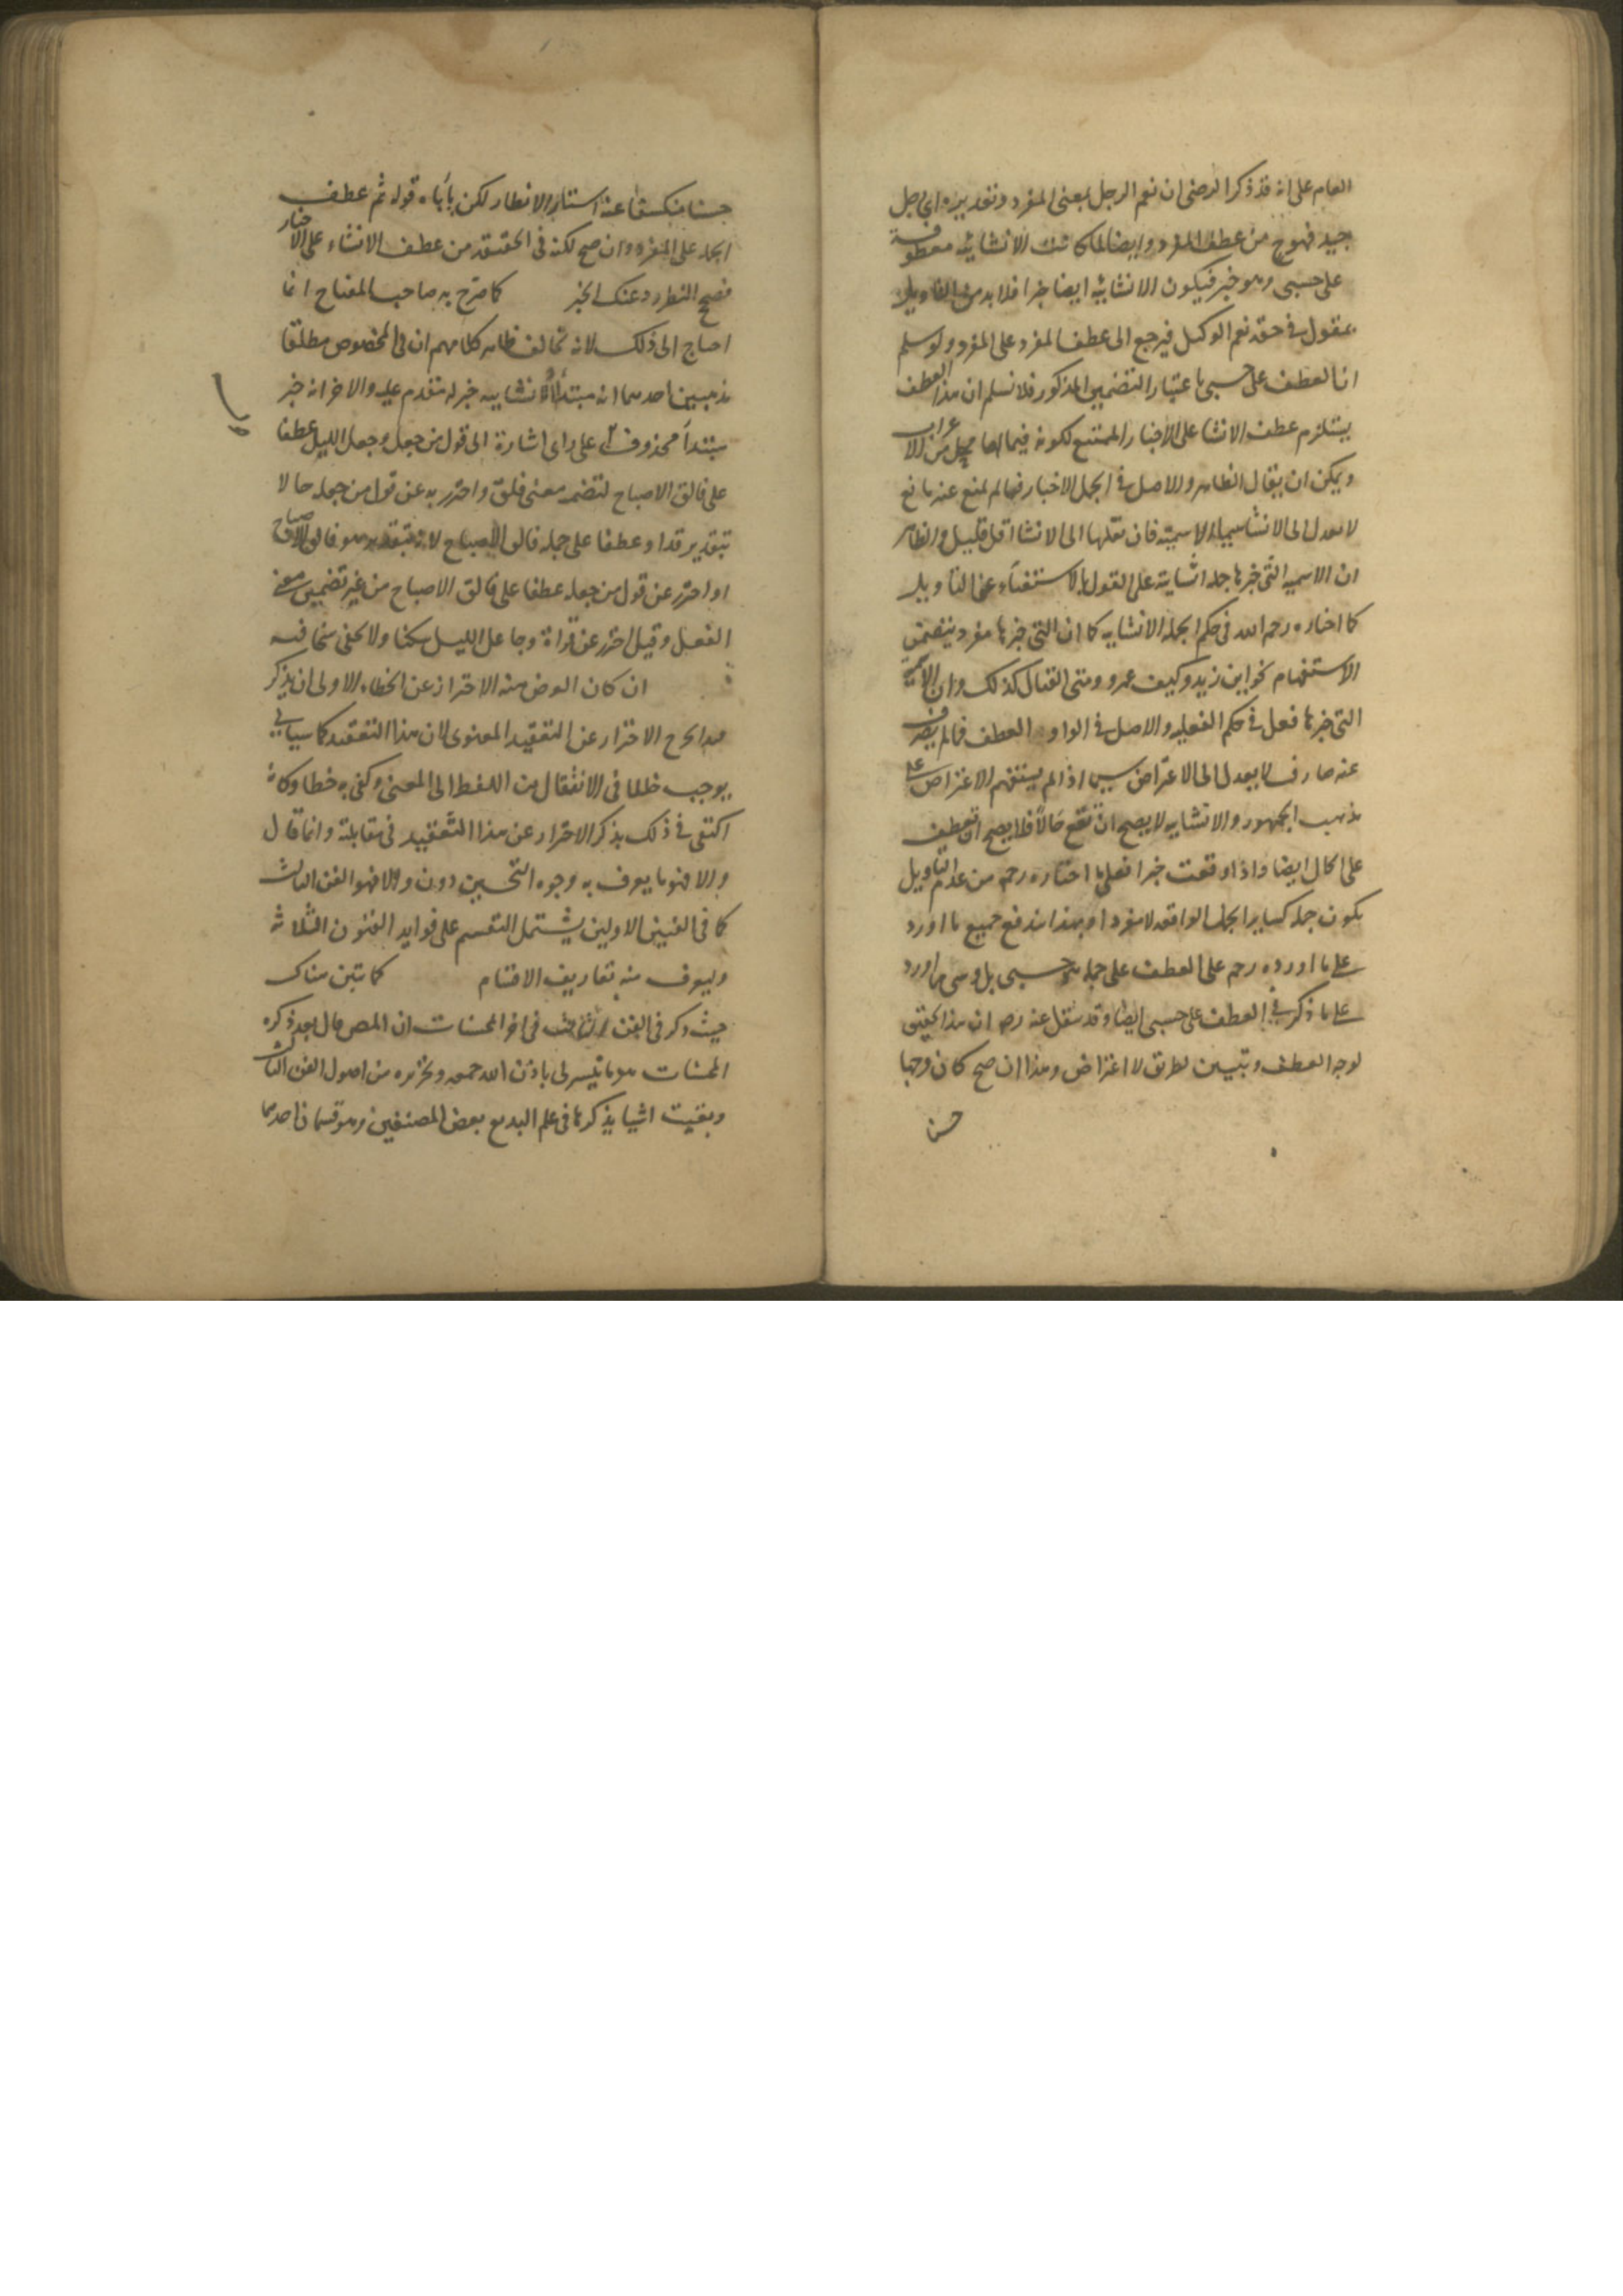 العام على انه قد ذكر الرضى ان نعم الرجل بمعنى المفرد وتقديره اى رجل
جيد فهوح من عطف المفرد وايضا لما كانت الانشائية معطوفة
على حسبى وهو خبر فيكون الانشائية ايضا خبرا فلا بد من التاويل
بمقول فى حقه نعم الوكيل فيرجع الى عطف المفرد على المفرد ولو سلم
ان العطف على حسبى باعتبار التضمين المذكور فلا نسلم ان هذا العطف
يستلزم عطف الانشا على الاخبار الممتنع لكونه فيما لها محل من الاعراب
ويمكن ان يقال الظاهر والاصل فى الجمل الاخبار فما لم يمنع عنه مانع
لا يعدل الى الانشا سيما الاسمية فان نقلها الى الانشا اقل قليل والظاهر
ان الاسمية التى خبرها جملة انشاية على القول بالاستغناء عن التاويل
كما اختاره رحمه الله فى حكم الجملة الانشايه كما ان التى خبرها مفرد يتضمن
الاستفهام نحو اين زيد وكيف عمرو ومتى القتال كذلك وان الاسمية
التى خبرها فعل فى حكم الفعلية والاصل فى الواو العطف فما لم يصرف
عنه صارف لا يعدل الى الاعتراض سيما اذا لم يستقم الاعتراض على
مذهب الجمهور والانشايه لا يصح ان تقع حالا فلا يصح ان تعطف
على الحال ايضا واذا وقعت خبرا فعلى ما اختاره رحمه من عدم التاويل
يكون جملة كساير الجمل الواقعة لا مفردا وبهذا اندفع جميع ما اورد
على ما اورده رحمه على العطف على جملة هو حسبى بل وسى ما اورد
على ما ذكر فى العطف على حسبى ايضا وقد نقل عنه رحمه ان هذا تحقيق
لوجه العطف وتبيين لطريق لا اعتراض وهذا ان صح كان وجها
حسن
حسنا منكشفا عنه استار الانظار لكن ياباه قوله ثم عطف
الجملة على المفرد وان صح لكنه فى الحقيقة من عطف الانشاء على الاخبار
كما صرح به صاحب المفتاح انما
احتاج الى ذلك لانه تخالف ظاهر كلامهم ان فى المخصوص مطلقا
مذهبين احدهما انه مبتدأ والانشاييه خبر له متقدم عليه والاخر انه خبر
مبتدأ محذوف على راى اشارة الى قول من جعل وجعل الليل عطفا
على فالق الاصباح لتضمنه معنى فلق واحترز به عن قول من جعله حالا
بتقدير قد او عطفا على جملة فالق الاصباح لانه بتقدير هو فالق الاصباح
او احترز عن قول من جعله عطفا على فالق الاصباح من غير تضمين معنى
الفعل وقيل احترز عن قراة وجاعل الليل سكنا ولا يخفى سخافته
ان كان الغرض منه الاحتراز عن الخطاء الاولى ان يذكر
الاحتراز عن التعقيد المعنوى لان هذا التعقيد كما سياتى
يوجب خللا فى الانتقال من اللفظ الى المعنى وكفى به خطا وكانه
اكتفى فى ذلك بذكر الاحتراز عن هذا التعقيد فى مقابلة وانما قال
والا فهو ما يعرف به وجوه التحسين دون والا فهو الفن الثالث
كما فى الفنين الاولين ليشتمل التقسيم على فوايد الفنون الثلاثة
وليعرف منه تعاريف الاقسام كما تبين هناك
حيث ذكر فى الفن الثالث فى اخر المحسنات ان المص قال بعد ذكره
المحسنات هو ما تيسر لى باذن الله جمعه وتحريره من اصول الفن الثالث
وبقيت اشيا يذكرها فى علم البديع بعض المصنفين وهو قسمان احدهما